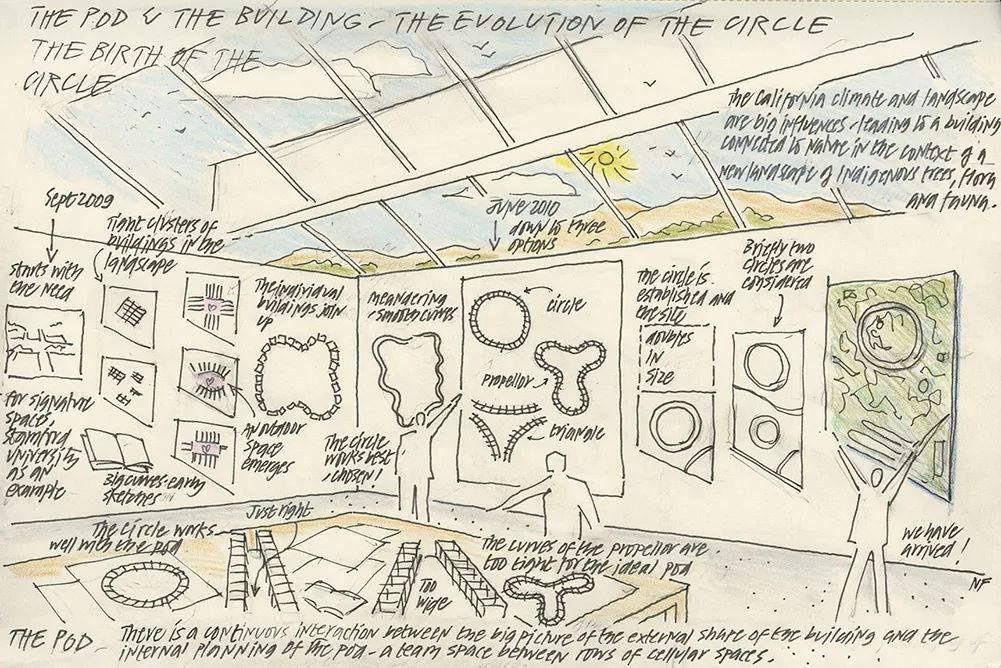 THE POD & THE BUILDING - THE EVOLUTION OF THE CIRCLE
THE BIRTH OF THE
CIRCLE
The California climate and landscape
are big influences - leading to a building
connected to nature in the context of a
new landscape of indigenous trees, flora
and fauna.
Sept 2009
Starts with
the need
Tight clusters of
buildings in the
landscape
For signature
spaces,
Stamford
University
as an
example
Big curves - early
sketches
An outdoor
space
emerges
The individual
buildings join
up
meandering
- smooth curves
The circle
works best
- chosen!
June 2010
down to three
options
circle
propellor
triangle
The circle is
established and
the site
doubles
in
size
Briefly two
circles are
considered
we have
arrived!
NF
The circle works
well with the pod
Just right
Too
wide
The curves of the propellor are
too tight for the ideal pod
THE POD - There is a continuous interaction between the big picture of the external share of the building and the
internal planning of the pod - a team space between rows of cellular spaces.